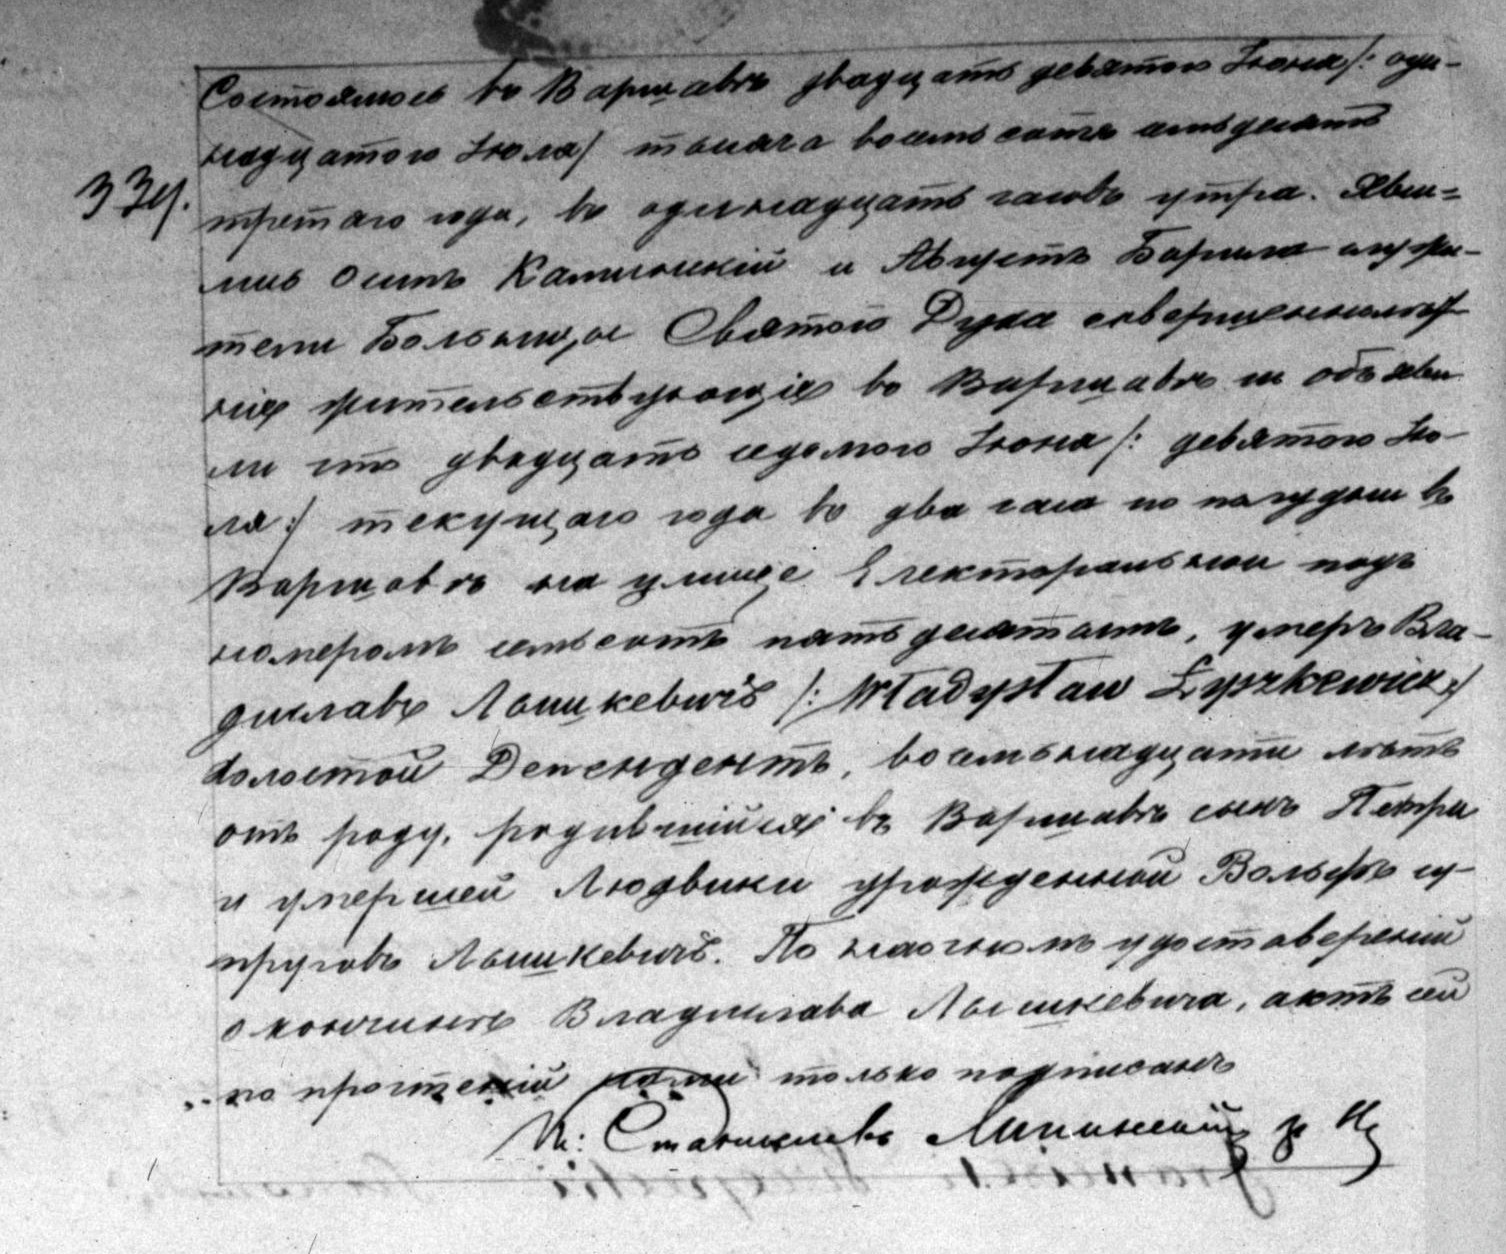 334.
Состоялось въ Варшавѣ двадцать девятого Іюня /: оди-
надцатого Іюля / тысяча восемьсотъ семьдесятъ
третяго года, въ одинадцать часовъ утра. Яви=
лись Осипъ Калиньскій и Августъ служи-
тели Больницы Святого Духа совершеннолѣт
ніе жительствующіе въ Варшавѣ и объяви
ли что двадцать седьмого Іюня /: девятого Ію-
ля :/ текущаго года въ два часа по полудни въ
Варшавѣ на улице Електоральной подъ
номеромъ семьсотъ пятьдесятымъ, умеръ Вла-
диславъ Лышкевичъ /: Władysław Łyszkewicz :/
холостой Депендентъ, восемьнадцати лѣтъ
отъ роду, родившійся въ Варшавѣ сынъ Петра
и умершей Людвики урожденной Вольфъ су-
пруговъ Лышкевичъ. По наочномъ удостоверении
о кончинѣ Владислава Лышкевича, актъ сей
по прочтеніи нами только подписанъ
Станиславъ